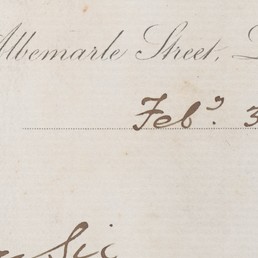 Albemarle Street,
Feb? 3
Sir